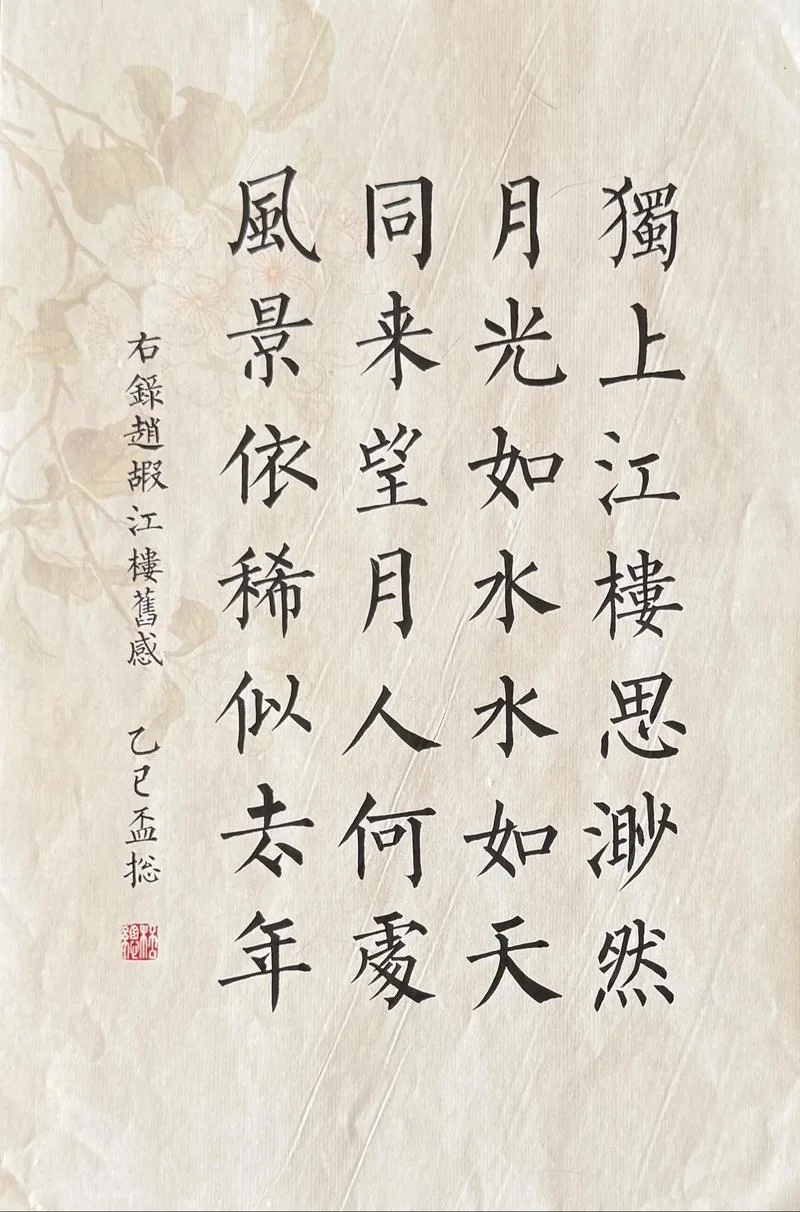 獨上江樓思渺然
月光如水水如天
同来望月人何處
風景依稀似去年
右錄趙嘏江樓舊感 乙巳盃捴